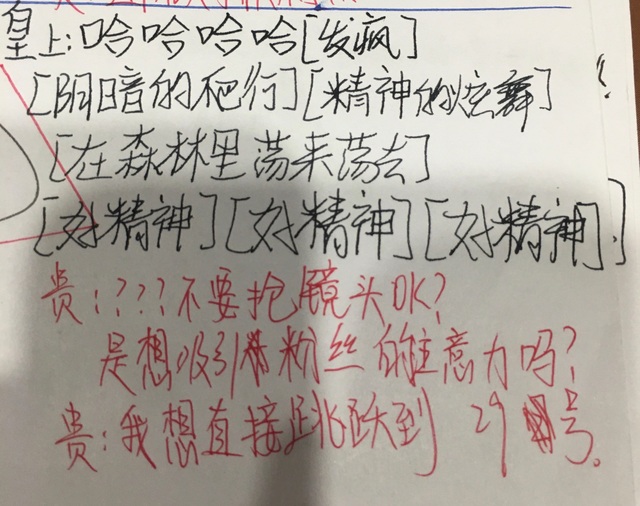 皇上:哈哈哈哈[发疯]
[阴暗的爬行][精神的炫舞]
[在森林里荡来荡去]
[好精神][好精神][好精神].]
贵:???不要抢镜头OK?
是想吸引粉丝的注意力吗?
贵:我想直接跳跃到29号。